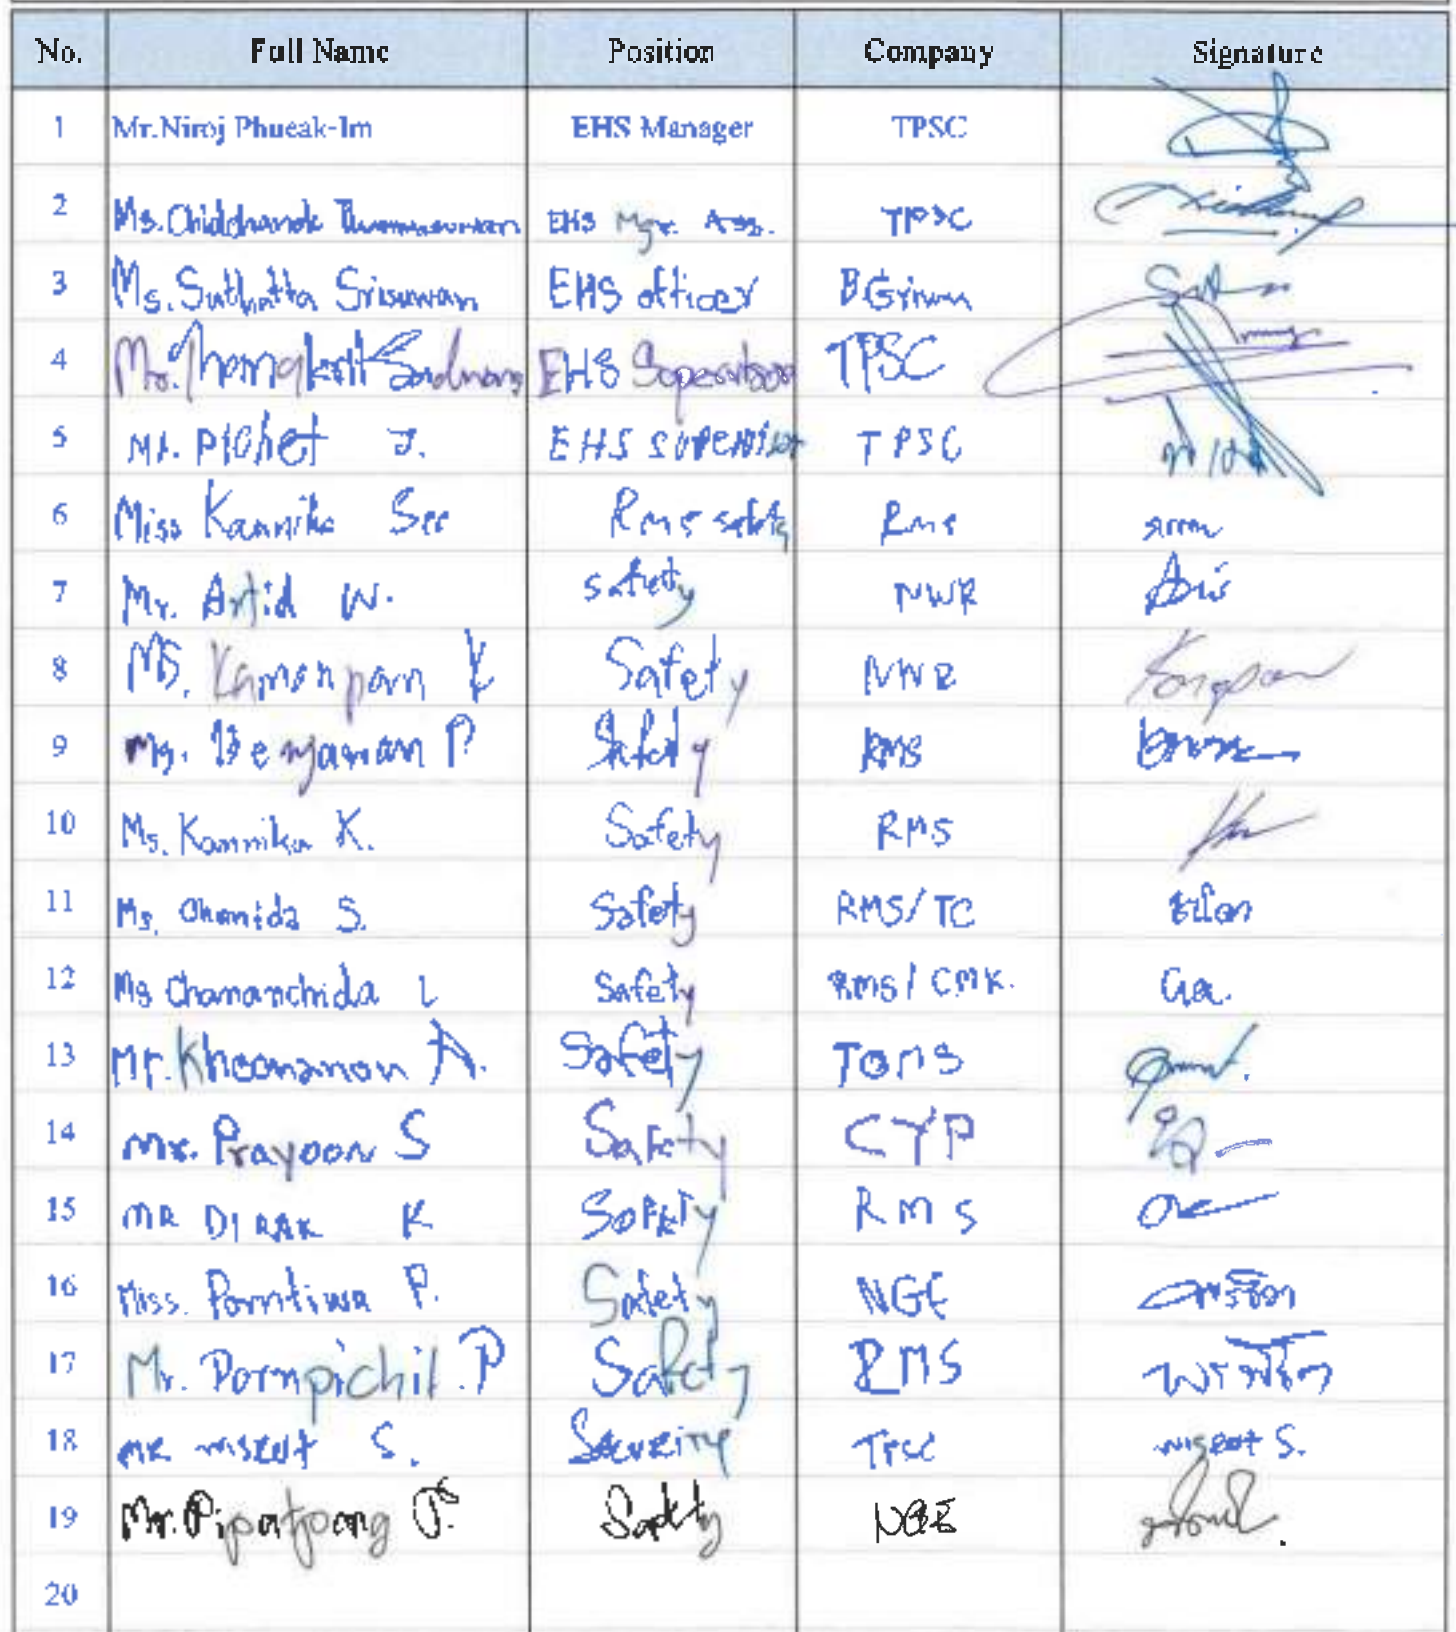 No. Full Name Position Company Signature
1 Mr.Niroj Phueak-Im EHS Manager TPSC
2 Ms. Chidchanok EHS Mgr. Ass. TPSC
3 Ms. Suthatta Srisuwan EHS officer BGrimm
4 Mr. EHS TPSC
5 Mr. Pichet J. EHS TPSC
6 Miss Kannika See Rms safety Rms
7 Mr. Artid W. safety NWR
8 Ms. Kamonparn K Safety NWR
9 Ms. Benjawan P Safety RMS
10 Ms. Kannika K. Safety RMS
11 Ms. Chanida S. Safety RMS/TC
12 Ms Chananchida L Safety RMS/CMK.
13 Mr. A. Safety TOMS
14 Mr. Prayoon S Safety CYP
15 MR DIRAK K Safety RMS
16 Miss. Porntiwa P. Safety NGE
17 Mr. Pornpichit .P Safety RMS
18 MR S. Security TPSC S.
19 Mr. Pipatpong P. Safety NGE
20